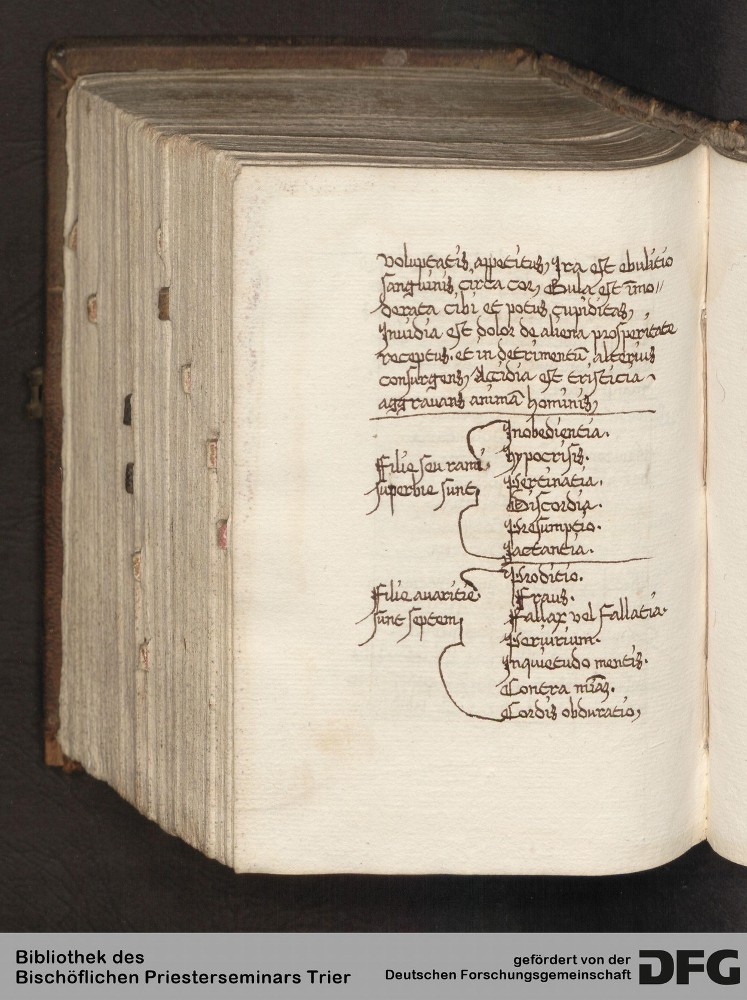 voluptatis appetitus, Ira est ebulitio
sanguinis circa cor, Gula est īmo//
derata cibi et potus cupiditas,
Inuidia est dolor de aliena prosperitate
receptus. et in detrimentū alterius
consurgens, Accidia est tristicia
aggrauans animā hominis,
Inobedientia.
hypocrisis.
Filie seu rami
Pertinatia.
superbie sunt
Discordia.
Presumptio.
Jactantia.
Proditio.
Filie auaritie
Fraus.
Fallax vel Fallatia.
sunt septem
Periurium.
Inquietudo mentis.
Contra mīas.
Cordis obduratio,
Bibliothek des
Bischöflichen Priesterseminars Trier
gefördert von der
Deutschen Forschungsgemeinschaft
DFG